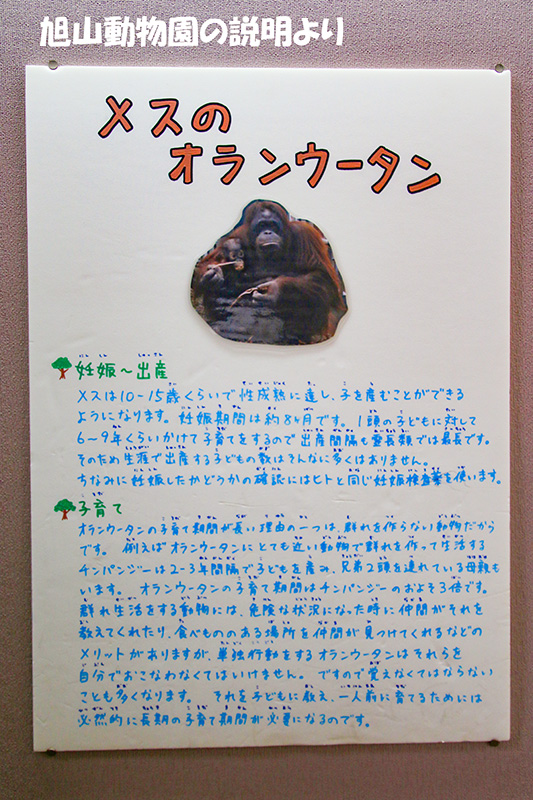 旭山動物園の説明より
メスの
オランウータン
妊娠〜出産
メスは10-15歳くらいで性成熟に達し、子を産むことができる
ようになります。妊娠期間は約8ヶ月です。1頭の子どもに対して
6〜9年くらいかけて子育てをするので出産間隔も霊長類では最長です。
そのため生涯で出産する子どもの数はそんなに多くはありません。
ちなみに妊娠したかどうかの確認にはヒトと同じ妊娠検査薬を使います。
子育て
オランウータンの子育て期間が長い理由の一つは、群れを作らない動物だから
です。例えばオランウータンにとても近い動物で群れを作って生活する
チンパンジーは2-3年間隔で子どもを産み、兄弟2頭を連れている母親も
います。オランウータンの子育て期間はチンパンジーのおよそ3倍です。
群れ生活をする動物には、危険な状況になった時に仲間がそれを
教えてくれたり、食べもののある場所を仲間が見つけてくれるなどの
メリットがありますが、単独行動をするオランウータンはそれらを
自分でおこなわなくてはいけません。ですので覚えなくてはならない
ことも多くなります。それを子どもに教え、一人前に育てるためには
必然的に長期の子育て期間が必要になるのです。